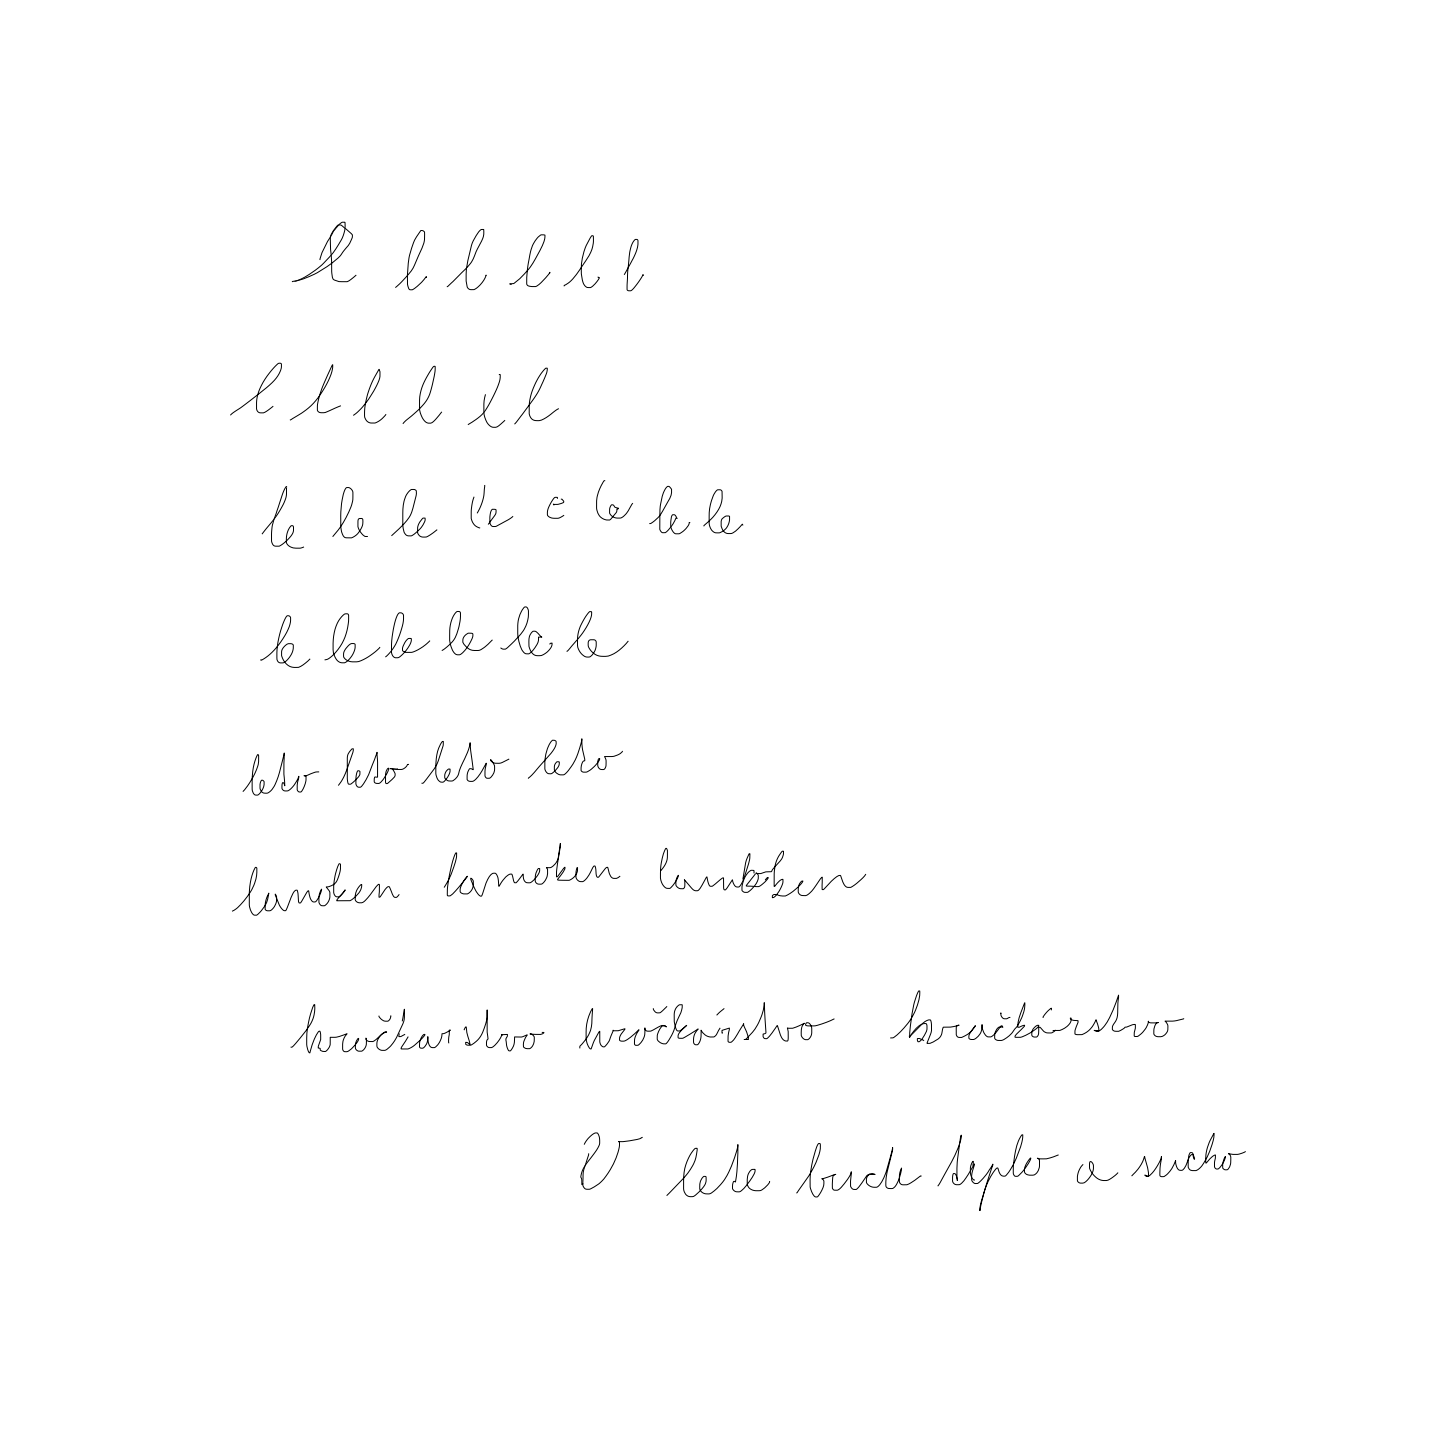 l l l l l l
l l l l l l
le le le le e le le le
le le le le le le
leto leto leto leto
lamoken lamoken
hračkarstvo hračkárstvo hračkárstvo
V lete bude teplo a sucho